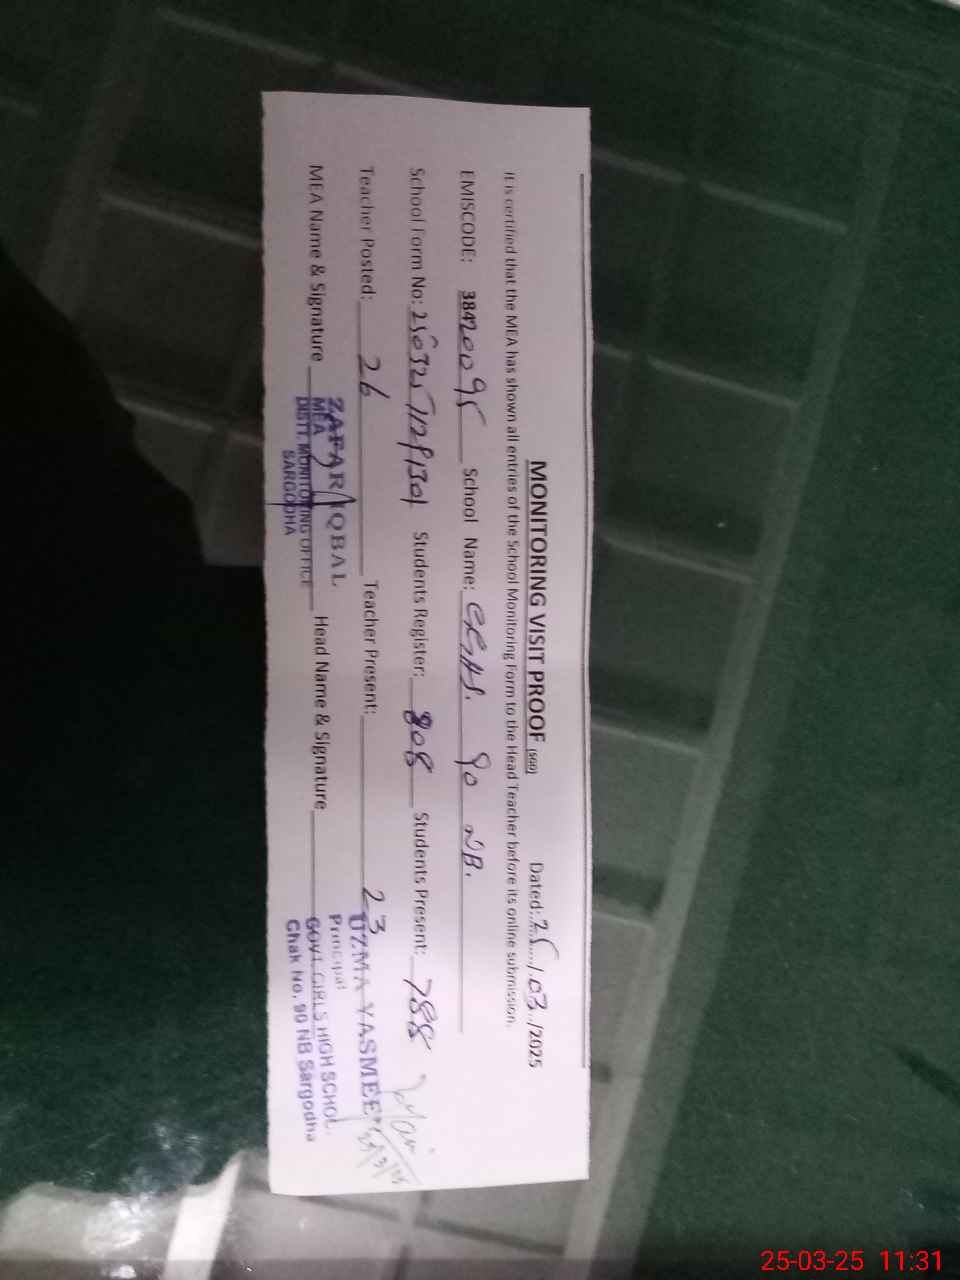 MONITORING VISIT PROOF (SGD) Dated: 25/03/2025
It is certified that the MEA has shown all entries of the School Monitoring Form to the Head Teacher before its online submission.
EMISCODE: 38420095 School Name: GGHS. 90 NB.
School Form No: Students Register: 808 Students Present: 788
Teacher Posted: 26 Teacher Present: 23
MEA Name & Signature Head Name & Signature
ZAFAR IQBAL
MEA
DISTT. MONITORING OFFICE
SARGODHA
UZMA YASMEEN
Principal
GOVT. GIRLS HIGH SCHOL.
Chak No. 90 NB Sargodha
25-03-25 11:31